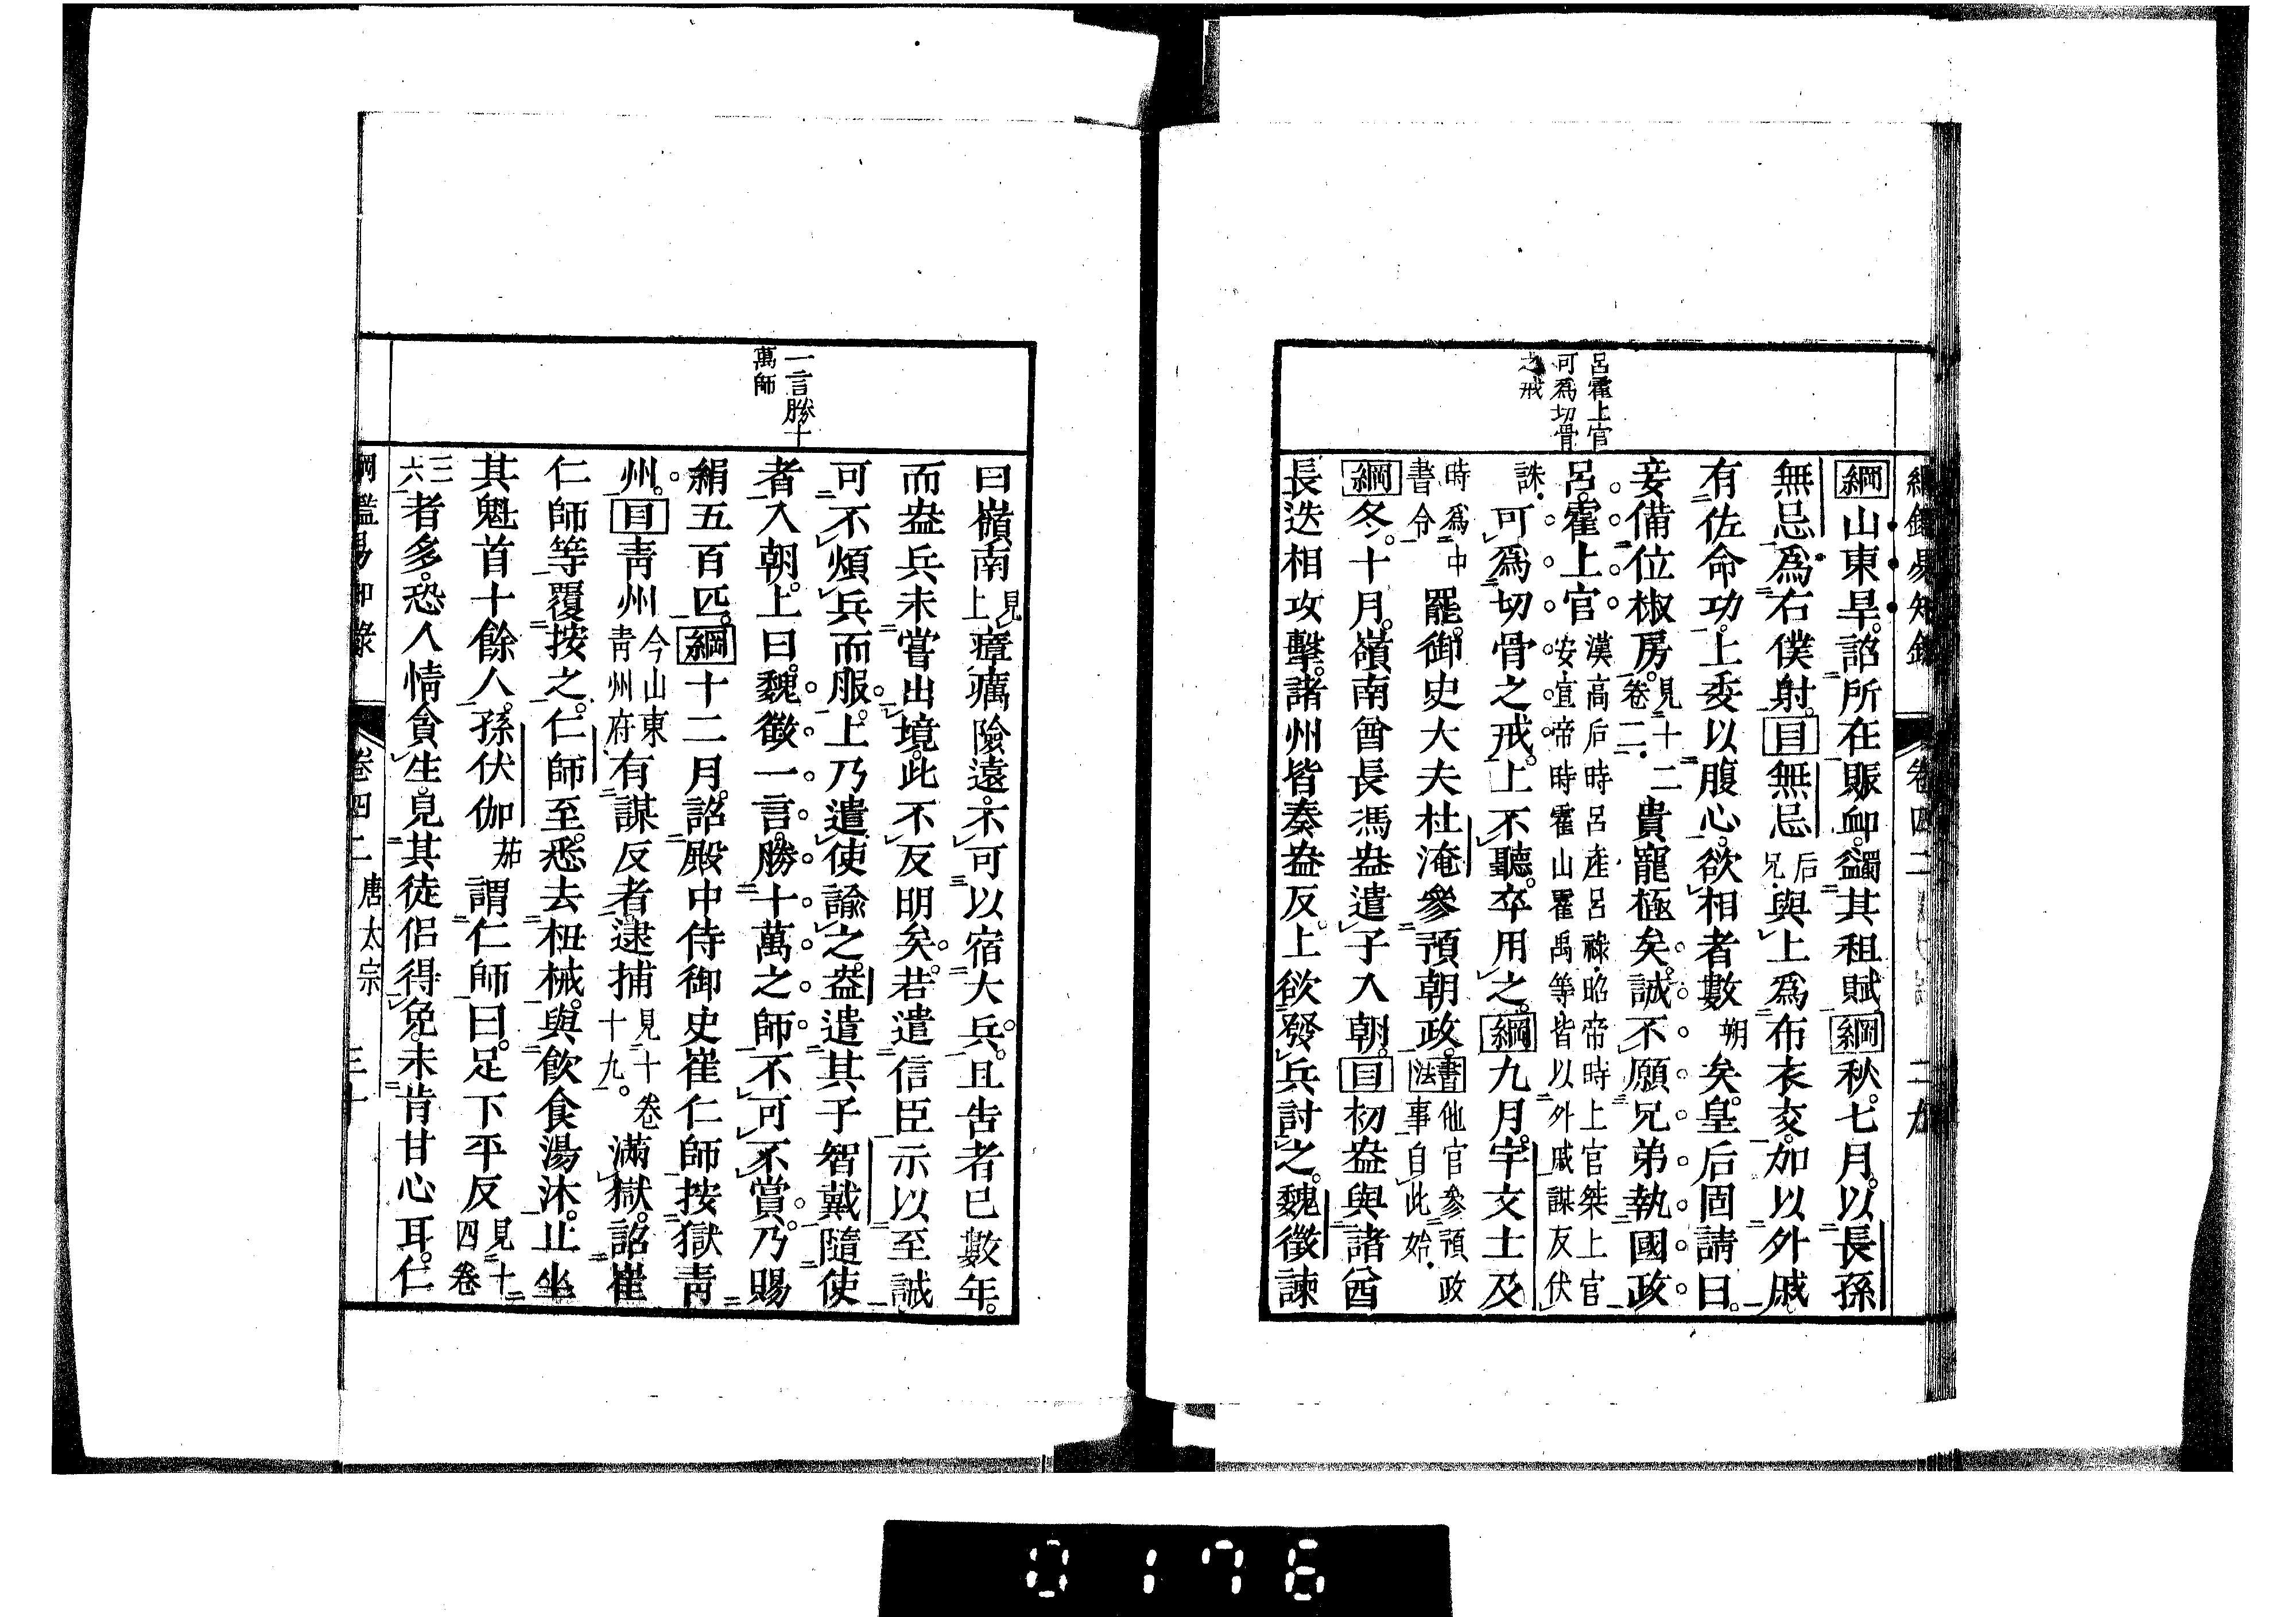 綱鑑易知録 卷四二 二九
呂霍上官
可爲切骨
之戒
綱山東旱。詔所在賑䘏。蠲其租賦。綱秋。七月。以長孫
無忌爲右僕射。目無忌后兄.與上爲布衣交。加以外戚
有佐命功。上委以腹心。欲相者數朔矣。皇后固請曰。
妾備位椒房。見十二卷二.貴寵極矣。誠不願兄弟執國政
呂。霍上官漢高后時呂產呂祿.昭帝時上官桀上官安宣帝時霍山霍禹等皆以外戚謀反伏
誅.可爲切骨之戒。上不聽。卒用之。綱九月。宇文士及
時爲中書令罷。御史大夫杜淹參預朝政。書法他官參預政事自此始.
綱冬。十月。嶺南酋長馮盎遣子入朝。目初盎與諸酋
長迭相攻擊。諸州皆奏盎反。上欲發兵討之。魏徵諫
一言勝十
萬師
曰嶺南見上瘴癘險遠。不可以宿大兵。且告者已數年。
而盎兵未嘗出境。此不反明矣。若遣信臣示以至誠
可不煩兵而服。上乃遣使諭之。盎遣其子智戴隨使
者入朝。上曰。魏徵一言。勝十萬之師。不可不賞。乃賜
絹五百匹。綱十二月。詔殿中侍御史崔仁師按獄靑
州。目靑州今山東靑州府有謀反者。逮捕見十卷十九。滿獄。詔崔
仁師等覆按之。仁師至。悉去杻械。與飮食湯沐。止坐
其魁首十餘人。孫伏伽茄謂仁師曰。足下平反見十四卷
三六者多。恐人情貪生。見其徒侶得免。未肯甘心耳。仁
綱鑑易知錄 卷四二 唐太宗 三十
0176